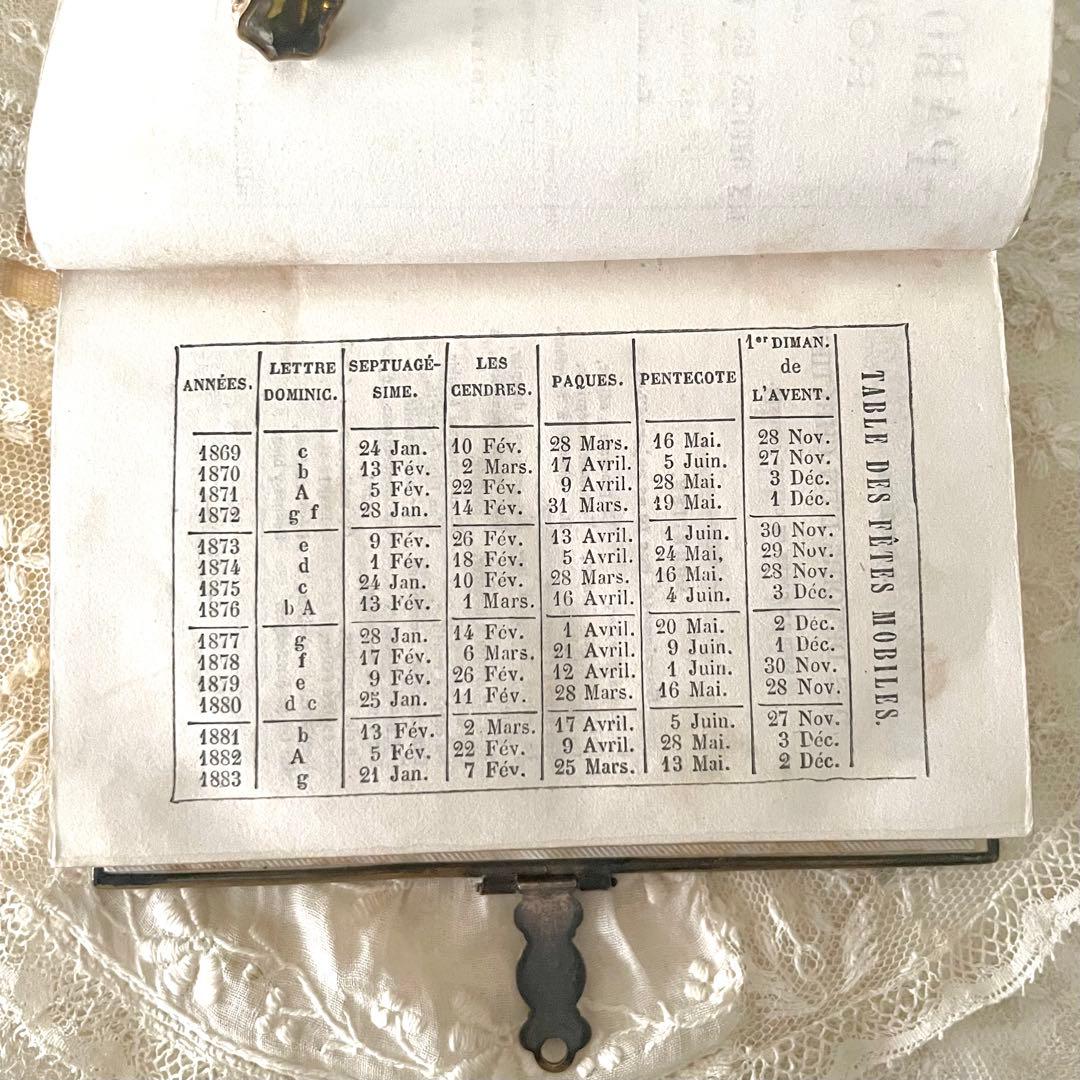 TABLE DES FÊTES MOBILES.
ANNÉES. LETTRE DOMINIC. SEPTUAGÉ-SIME. LES CENDRES. PAQUES. PENTECOTE 1er DIMAN. de L'AVENT.
1869 c 24 Jan. 10 Fév. 28 Mars. 16 Mai. 28 Nov.
1870 b 13 Fév. 2 Mars. 17 Avril. 5 Juin. 27 Nov.
1871 A 5 Fév. 22 Fév. 9 Avril. 28 Mai. 3 Déc.
1872 g f 28 Jan. 14 Fév. 31 Mars. 19 Mai. 1 Déc.
1873 e 9 Fév. 26 Fév. 13 Avril. 1 Juin. 30 Nov.
1874 d 1 Fév. 18 Fév. 5 Avril. 24 Mai, 29 Nov.
1875 c 24 Jan. 10 Fév. 28 Mars. 16 Mai. 28 Nov.
1876 b A 13 Fév. 1 Mars. 16 Avril. 4 Juin. 3 Déc.
1877 g 28 Jan. 14 Fév. 1 Avril. 20 Mai. 2 Déc.
1878 f 17 Fév. 6 Mars. 21 Avril. 9 Juin. 1 Déc.
1879 e 9 Fév. 26 Fév. 12 Avril. 1 Juin. 30 Nov.
1880 d c 25 Jan. 11 Fév. 28 Mars. 16 Mai. 28 Nov.
1881 b 13 Fév. 2 Mars. 17 Avril. 5 Juin. 27 Nov.
1882 A 5 Fév. 22 Fév. 9 Avril. 28 Mai. 3 Déc.
1883 g 21 Jan. 7 Fév. 25 Mars. 13 Mai. 2 Déc.